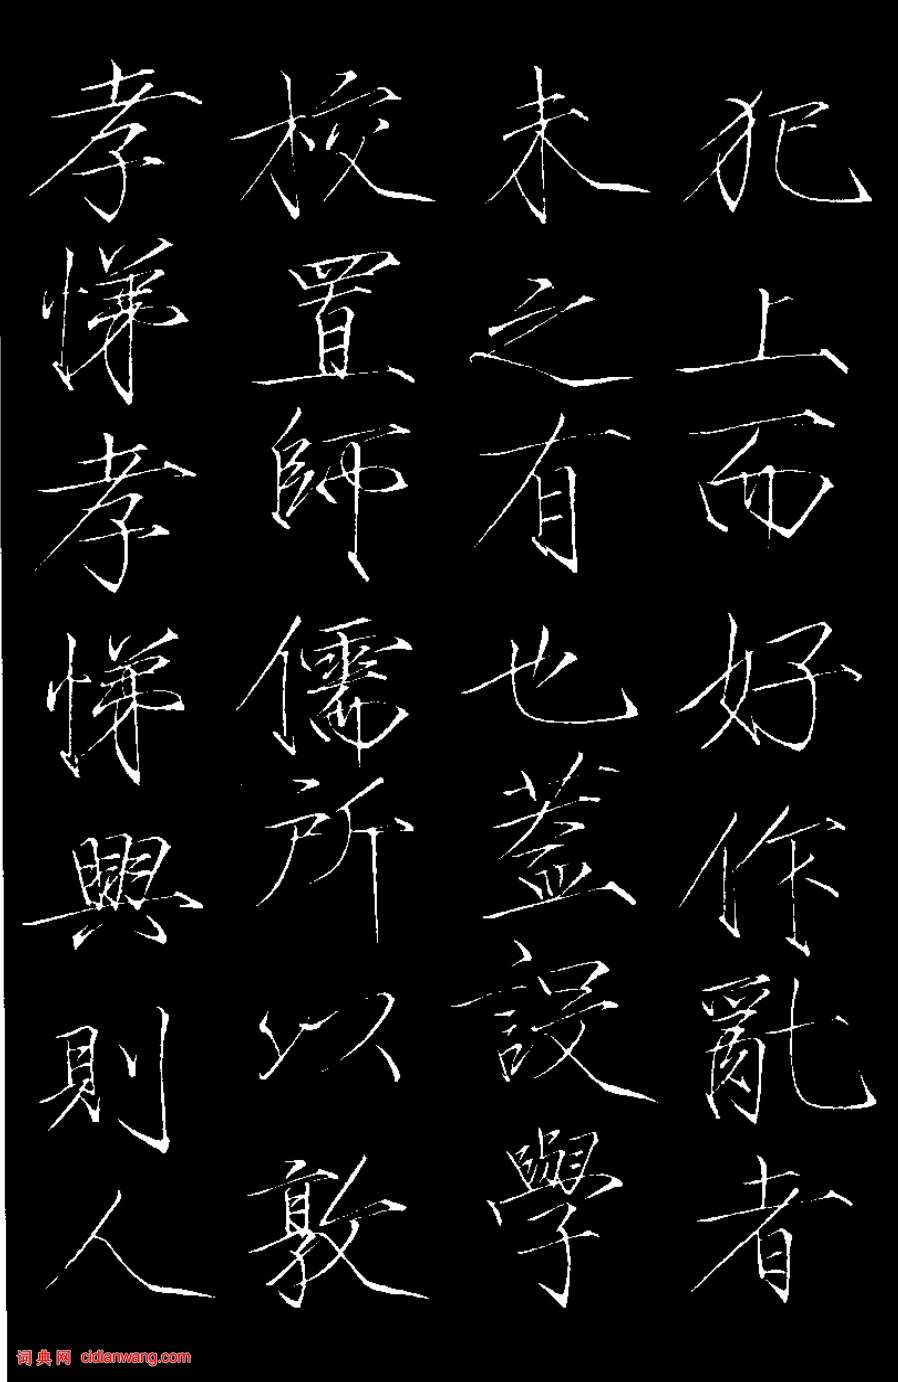 犯上而好作亂者
未之有也蓋設學
校置師儒所以敦
孝悌孝悌興則人
词典网 cidianwang.com